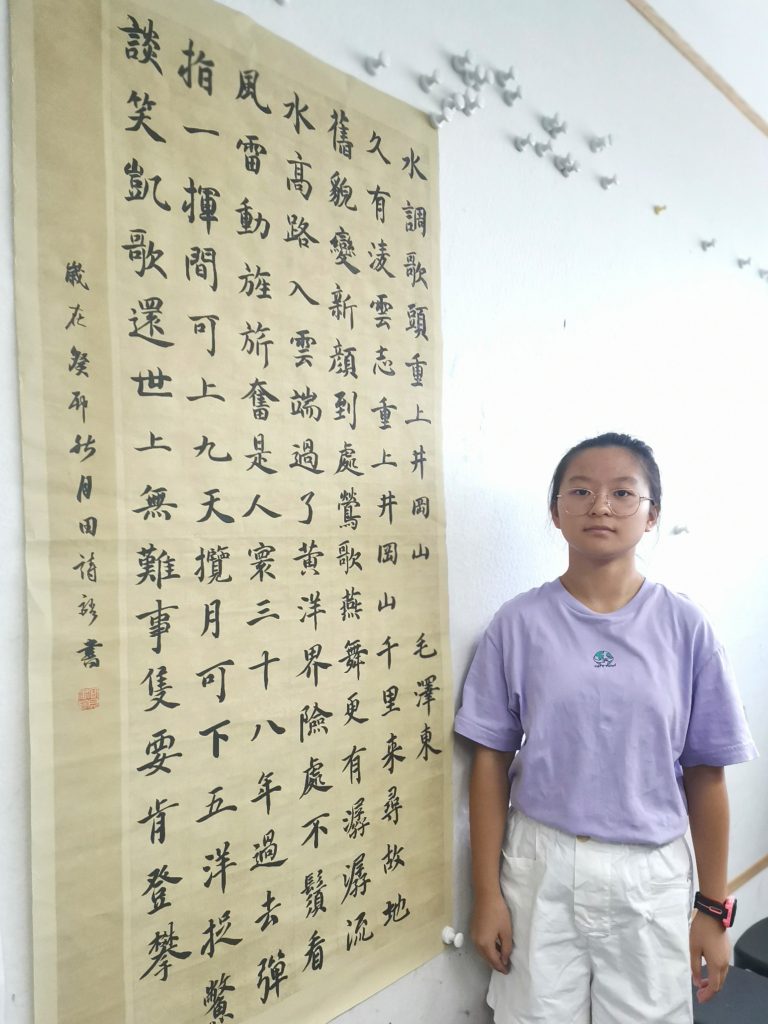 水調歌頭重上井岡山 毛澤東
久有淩雲志重上井岡山千里来尋故地
舊貌變新顔到處鶯歌燕舞更有潺潺流
水高路入雲端過了黄洋界險處不鬚看
風雷動旌旂奮是人寰三十八年過去彈
指一揮間可上九天攬月可下五洋捉鱉
談笑凱歌還世上無難事隻要肯登攀
嵗在癸卯秋月田詩書